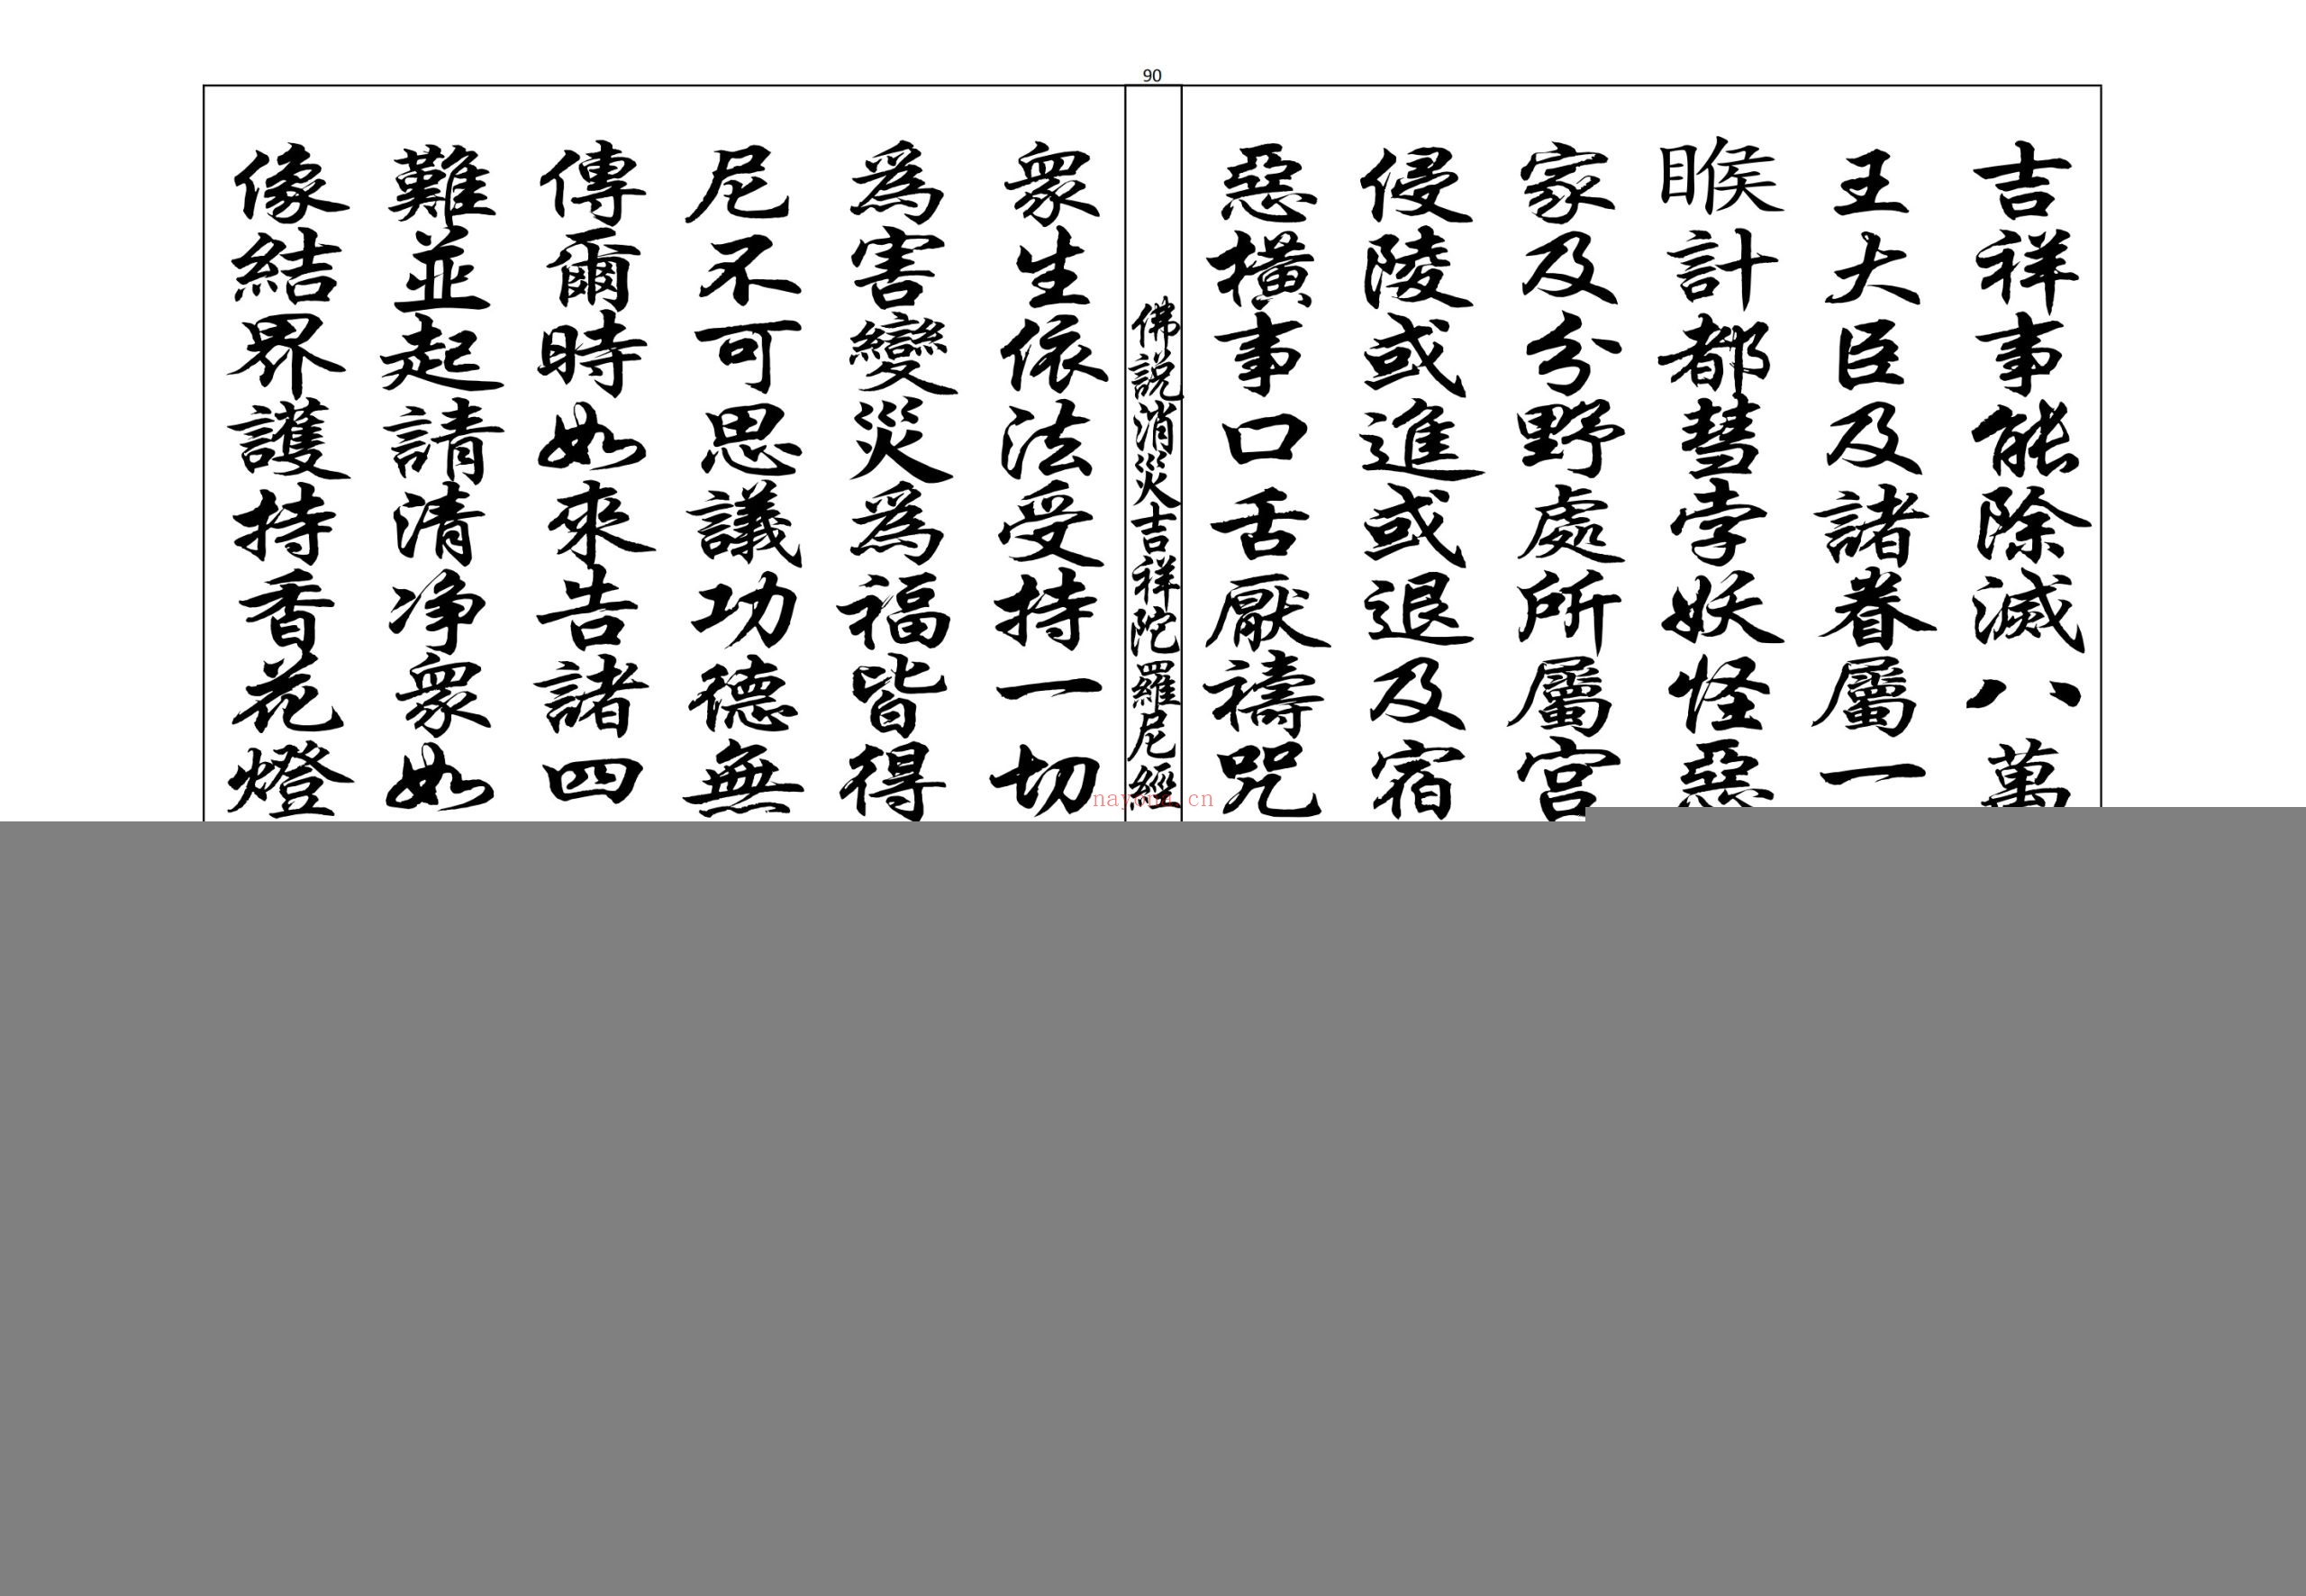 90
吉祥事能除滅八萬
王大臣及諸眷屬一
睺計都彗孛妖怪惡
家及分野處所屬宮
侵陵或進或退及宿
惡橫事口舌厭禱呪
佛說消災吉祥陀羅尼經
眾生依法受持一切
為害變災為福皆得
尼不可思議功德無
傳爾時如來告諸四
難並起請清淨眾如
像結界護持香花燈